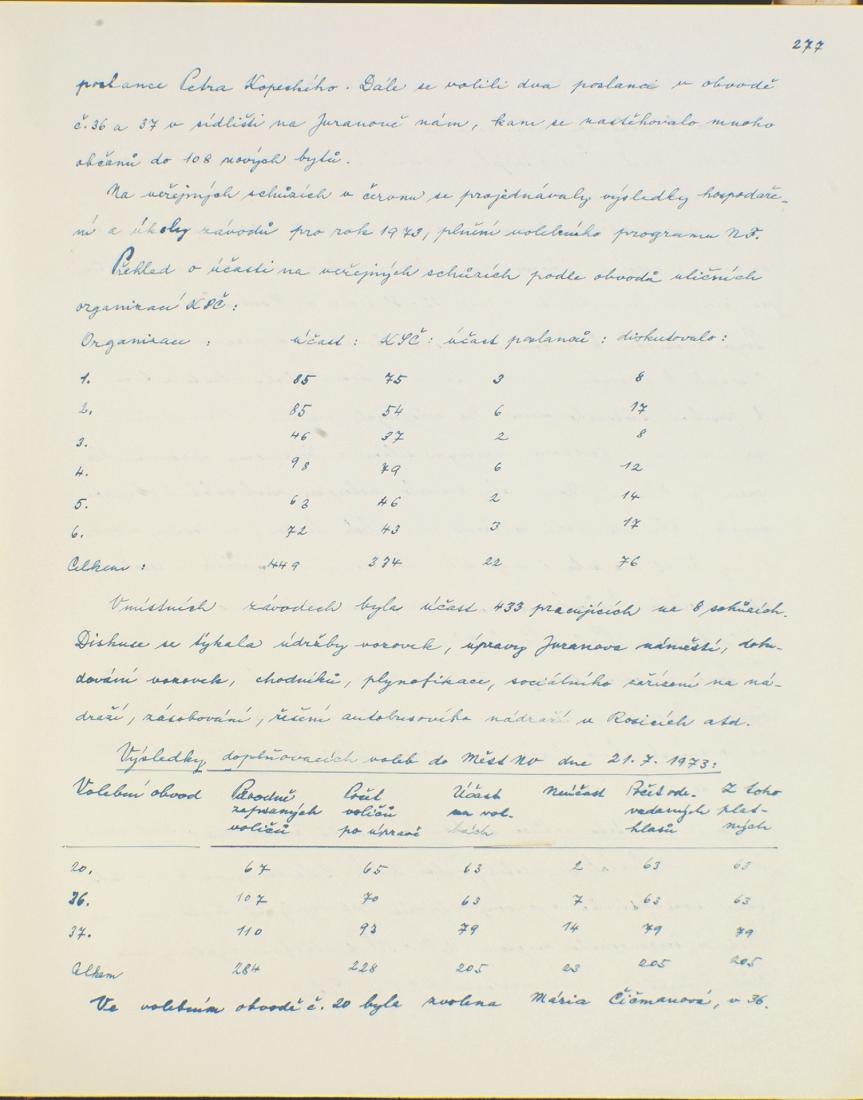 277
poslance Petra Kopeckého. Dále se volili dva poslanci v obvodě
č. 36 a 37 v sídlišti na Juranově nám, kam se nastěhovalo mnoho
občanů do 108 nových bytů.
Na veřejných schůzích v červnu se projednávaly výsledky hospodaře-
ní a úkoly závodů pro rok 1973, plnění volebního programu NF.
Přehled o účasti na veřejných schůzích podle obvodů uličních
organizací KSČ:
Organizace : účast : KSČ : účast poslanců : diskutovalo :
1. 85 75 3 8
2. 85 54 6 17
3. 46 37 2 8
4. 98 79 6 12
5. 63 46 2 14
6. 72 43 3 17
Celkem : 449 334 22 76
V místních závodech byla účast 433 pracujících na 8 schůzích.
Diskuse se týkala údržby vozovek, úpravy Juranova náměstí, dobu-
dování vozovek, chodníků, plynofikace, sociálního zařízení na ná-
draží, zásobování, řešení autobusového nádraží v Rosicích atd.
Výsledky doplňovacích voleb do Měst NV dne 21.7. 1973:
Volební obvod Původně zapsaných voličů Počet voličů po úpravě Účast na vol- bách Neúčast Počet ode- vzdaných hlasů Z toho plat- ných
20. 67 65 63 2 63 63
36. 107 70 63 7 63 63
37. 110 93 79 14 79 79
Celkem 284 228 205 23 205 205
Ve volebním obvodě č. 20 byla zvolena Mária Čičmanová, v 36.